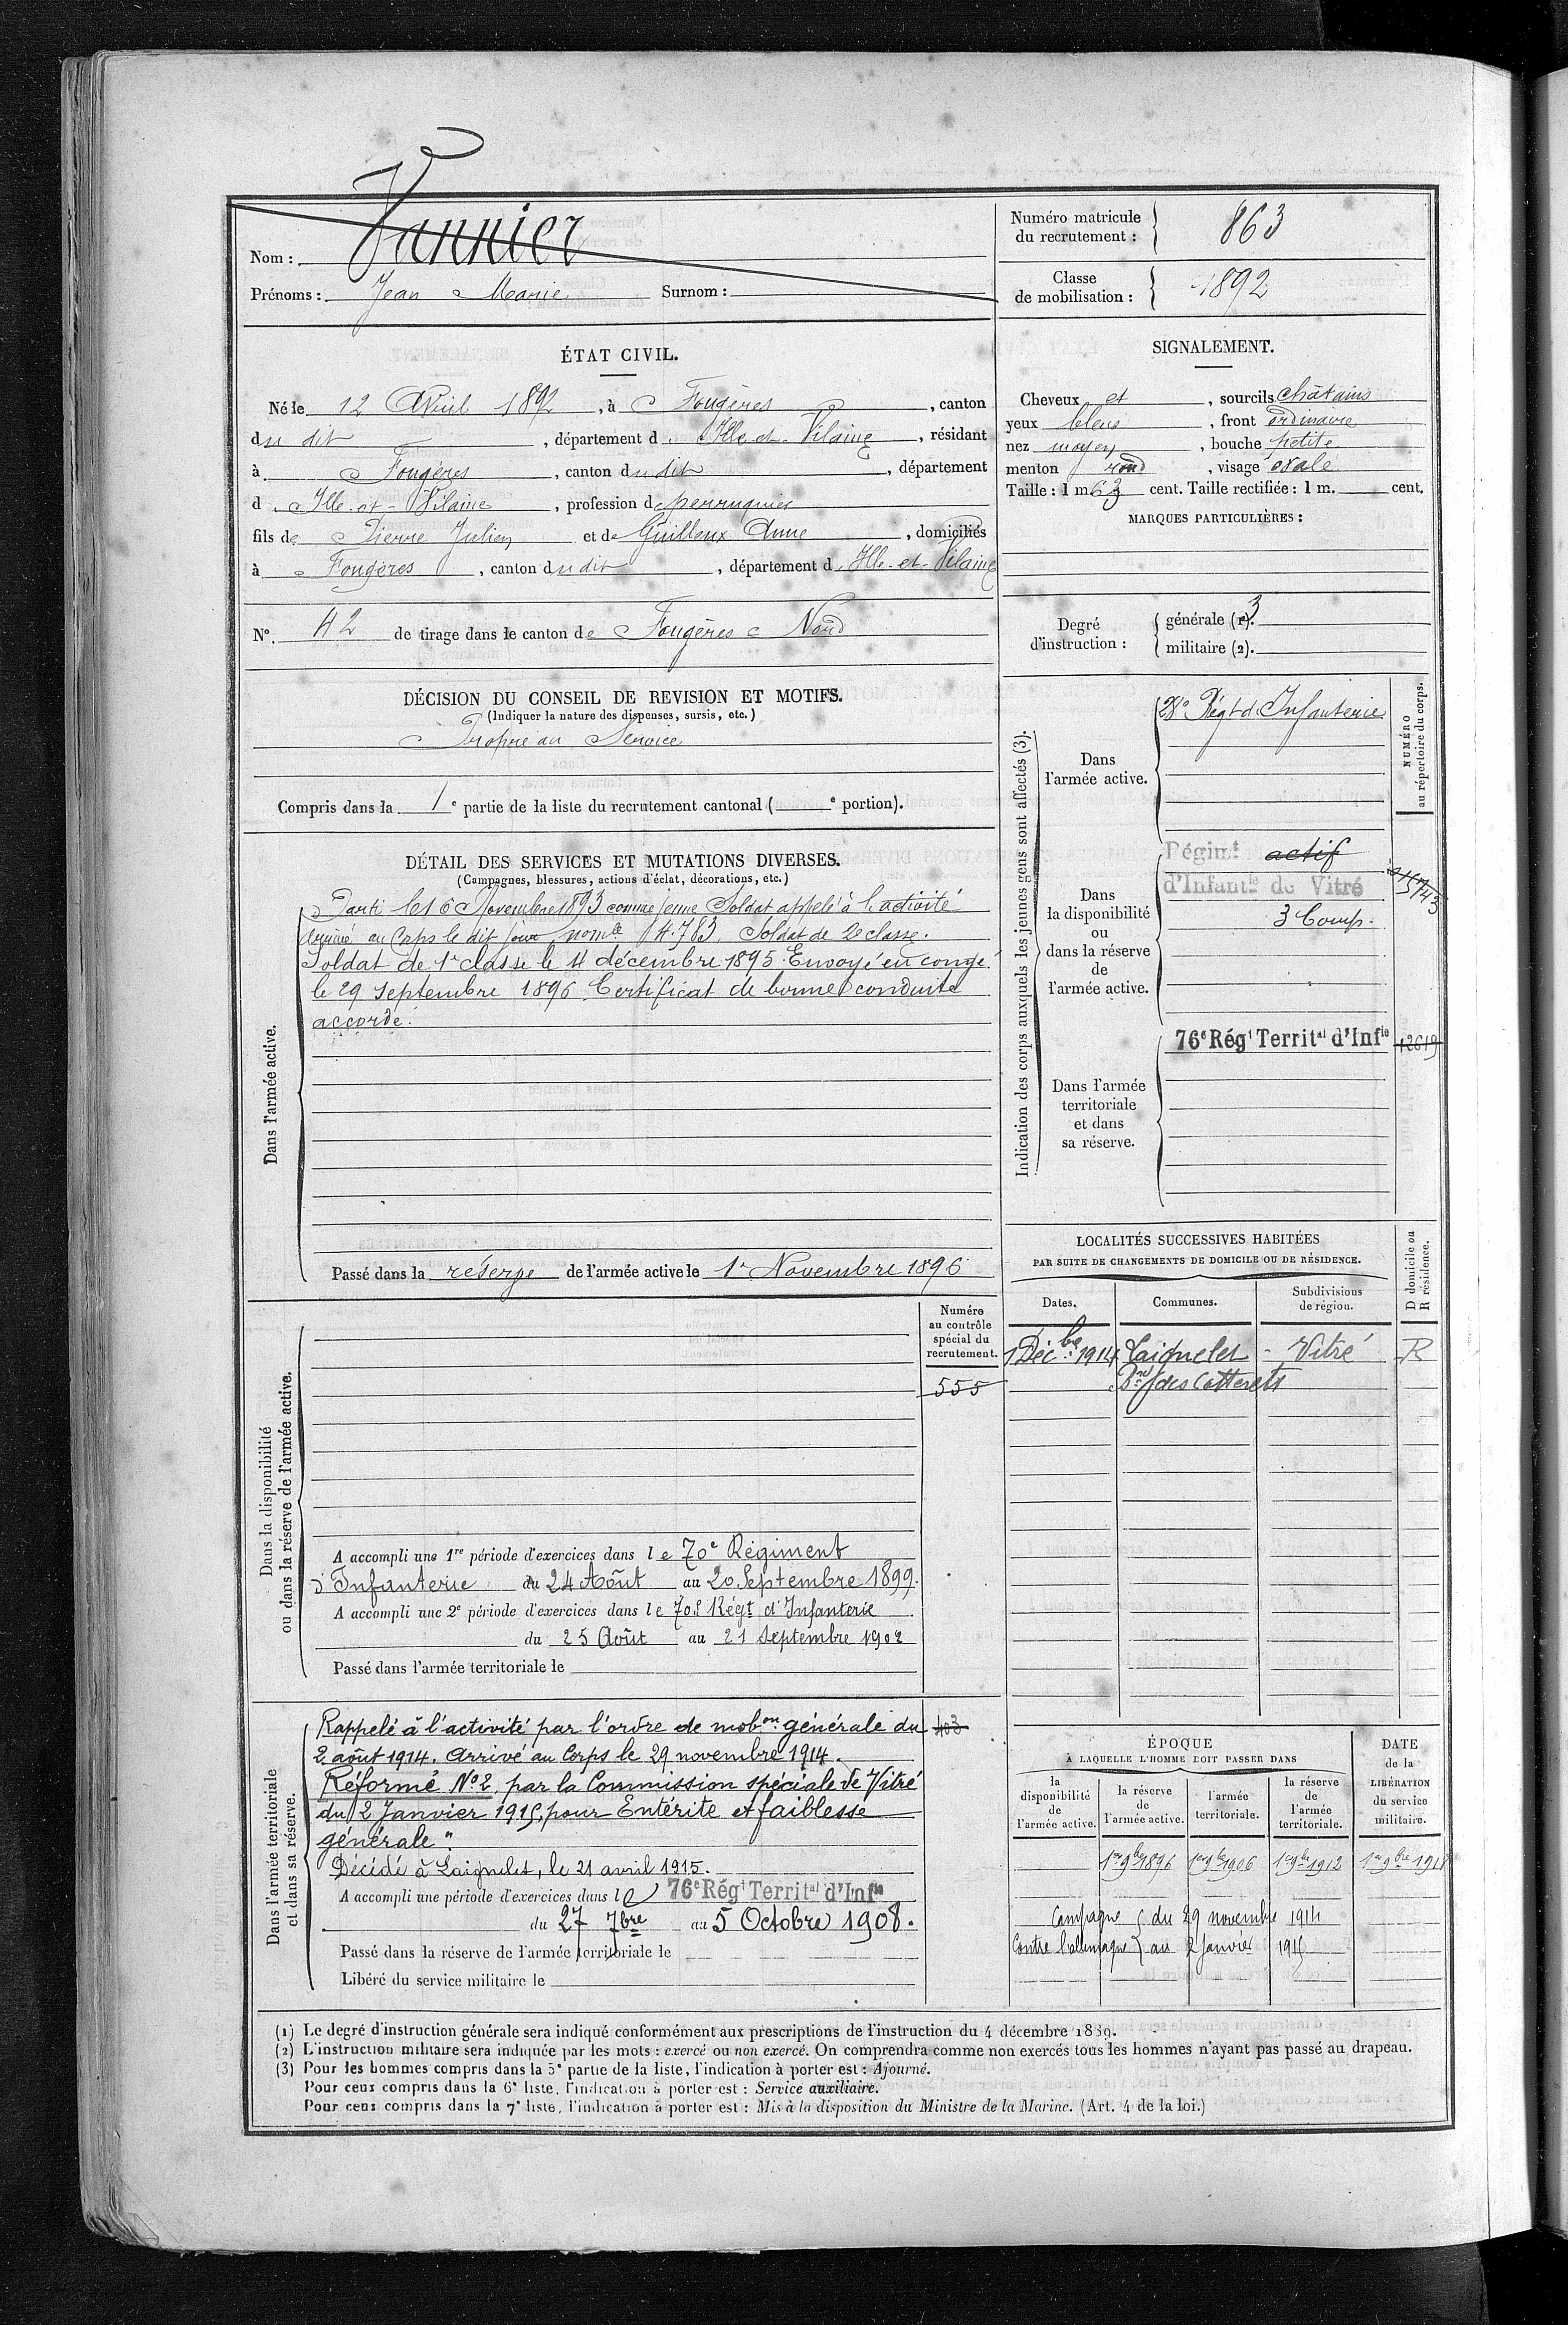 Vannier
Nom :
Prénoms : Jean Marie Surnom :
Numéro matricule du recrutement : 863
Classe de mobilisation : 1892
ÉTAT CIVIL.
Né le 12 Avril 1892, à Fougères, canton
du dit, département d Ille-et-Vilaine, résidant
à Fougères, canton du dit, département
d Ille-et-Vilaine, profession de perruquier
fils de Pierre Julien et de Guilleux Anne, domiciliés
à Fougères, canton du dit, département d Ille-et-Vilaine
N°. 42 de tirage dans le canton de Fougères Nord
SIGNALEMENT.
Cheveux et, sourcils châtains
yeux bleus, front ordinaire
nez moyen, bouche petite
menton rond, visage ovale
Taille : 1 m. 63 cent. Taille rectifiée : 1 m. cent.
MARQUES PARTICULIÈRES :
Degré d'instruction :
générale (1). 3
militaire (2).
DÉCISION DU CONSEIL DE REVISION ET MOTIFS.
(Indiquer la nature des dispenses, sursis, etc.)
Propre au Service
Compris dans la 1e partie de la liste du recrutement cantonal ( e portion).
DÉTAIL DES SERVICES ET MUTATIONS DIVERSES.
(Campagnes, blessures, actions d'éclat, décorations, etc.)
Dans l'armée active.
Parti le 16 Novembre 1893 comme jeune Soldat appelé à l'activité
arrivé au Corps le dit jour nomle 14.783. Soldat de 2e classe.
Soldat de 1e classe le 4 décembre 1895. Envoyé en congé
le 29 septembre 1896. Certificat de bonne conduite
accordé.
Passé dans la réserve de l'armée active le 1r Novembre 1896
Indication des corps auxquels les jeunes gens sont affectés (3).
NUMÉRO au répertoire du corps.
Dans l'armée active.
28e Régt d'Infanterie
Dans la disponibilité ou dans la réserve de l'armée active.
Régimt actif
d'Infantie de Vitré
3 Comp.
Dans l'armée territoriale et dans sa réserve.
76e Régt Territal d'Infie 12619
LOCALITÉS SUCCESSIVES HABITÉES
PAR SUITE DE CHANGEMENTS DE DOMICILE OU DE RÉSIDENCE.
Dates. Communes. Subdivisions de région. D domicile ou R résidence.
1 Décbe 1914 Laignelet - Vitré R
des Cotterets
Dans la disponibilité ou dans la réserve de l'armée active.
Numéro au contrôle spécial du recrutement.
555
A accompli une 1re période d'exercices dans le 70e Régiment
d'Infanterie du 24 Août au 20 Septembre 1899.
A accompli une 2e période d'exercices dans le 70e Régt d'Infanterie
du 25 Août au 21 Septembre 1902
Passé dans l'armée territoriale le
Dans l'armée territoriale et dans sa réserve.
Rappelé à l'activité par l'ordre de mobon générale du 403
2 août 1914. Arrivé au Corps le 29 novembre 1914.
Réformé No 2 par la Commission spéciale de Vitré
du 2 Janvier 1915, pour Entérite et faiblesse
générale"
Décédé à Laignelet, le 21 avril 1915.
A accompli une période d'exercices dans le 76e Régt Territal d'Infie
du 27 7bre au 5 Octobre 1908.
Passé dans la réserve de l'armée territoriale le
Libéré du service militaire le
ÉPOQUE
À LAQUELLE L'HOMME DOIT PASSER DANS
la disponibilité de l'armée active.
la réserve de l'armée active.
l'armée territoriale.
la réserve de l'armée territoriale.
DATE de la LIBÉRATION du service militaire.
1er 9bre 1896 1er 9bre 1906 1er 9bre 1912 1er 9bre 1918
Campagne du 29 novembre 1914
Contre l'allemagne au 2 janvier 1915
(1) Le degré d'instruction générale sera indiqué conformément aux prescriptions de l'instruction du 4 décembre 1889.
(2) L'instruction militaire sera indiquée par les mots : exercé ou non exercé. On comprendra comme non exercés tous les hommes n'ayant pas passé au drapeau.
(3) Pour les hommes compris dans la 5e partie de la liste, l'indication à porter est : Ajourné.
Pour ceux compris dans la 6e liste, l'indication à porter est : Service auxiliaire.
Pour ceux compris dans la 7e liste, l'indication à porter est : Mis à la disposition du Ministre de la Marine. (Art. 4 de la loi.)